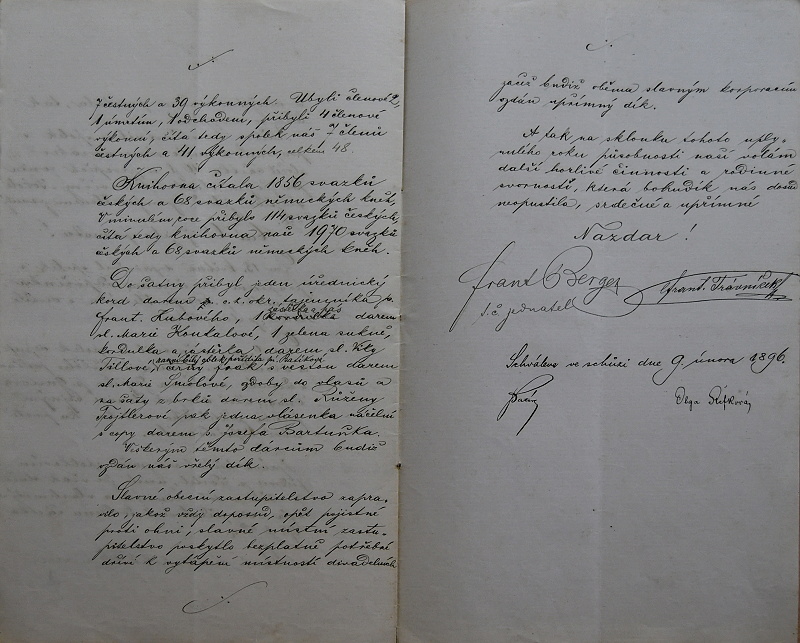 7 čestných a 39 výkonných. Ubyli členové 2,
1 úmrtím, 1 odchodem, přibyli 4 členové
výkonní, čítá tedy spolek náš 7 členů
čestných a 41 výkonných, celkem 48.
Knihovna čítala 1856 svazků
českých a 68 svazků německých kněh,
V minulém roce přibylo 114 svazků českých,
čítá tedy knihovna naše 1970 svazků
českých a 68 svazků německých kněh.
Do šatny přibyl jeden úřednický
kord, darem p. c. k. okr. tajemníka p.
Frant. Kubového, 1 zástěrka a pás darem
sl. Marie Koukalové, 1 zelená sukně,
kordulka a zástěrka darem sl.
Tillové, černý frak s vestou darem
sl. Marie ozdoby do vlasů a
na šaty z brků darem sl. Růženy
Trojtlerové, pak jedna vlásenka
s copy darem p. Josefa Bartuňka.
Veškerým těmto dárcům budiž
vzdán náš vřelý dík.
Slavné obecní zastupitelstvo zapra-
vilo, jakož vždy doposud, opět pojistné
proti ohni, slavné místní zastu-
pitelstvo poskytlo bezplatně potřebné
dříví k vytápění místností divadelních
začež budiž oběma slavným korporacím
vzdán upřímný dík.
A tak na sklonku tohoto uply-
nulého roku působnosti naší volám
další horlivé činnosti a rodinné
svornosti, která bohudík nás dosud
neopustila, srdečné a upřímné
Nazdar!
Frant Berger
t. č. jednatel
Frant. Trávníček
Schváleno ve schůzi dne 9. února 1896.
Olga